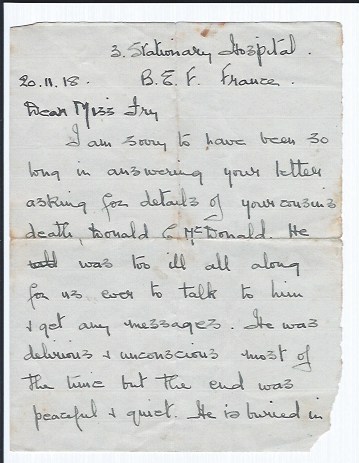 3. Stationary Hospital.
20.11.18. B.E.F. France.
Dear Miss Fry
I am sorry to have been so
long in answering your letter
asking for details of your cousins
death, Donald C McDonald. He
was too ill all along
for us ever to talk to him
& get any messages. He was
delirious & unconscious most of
the time but the end was
peaceful & quiet. He is buried in